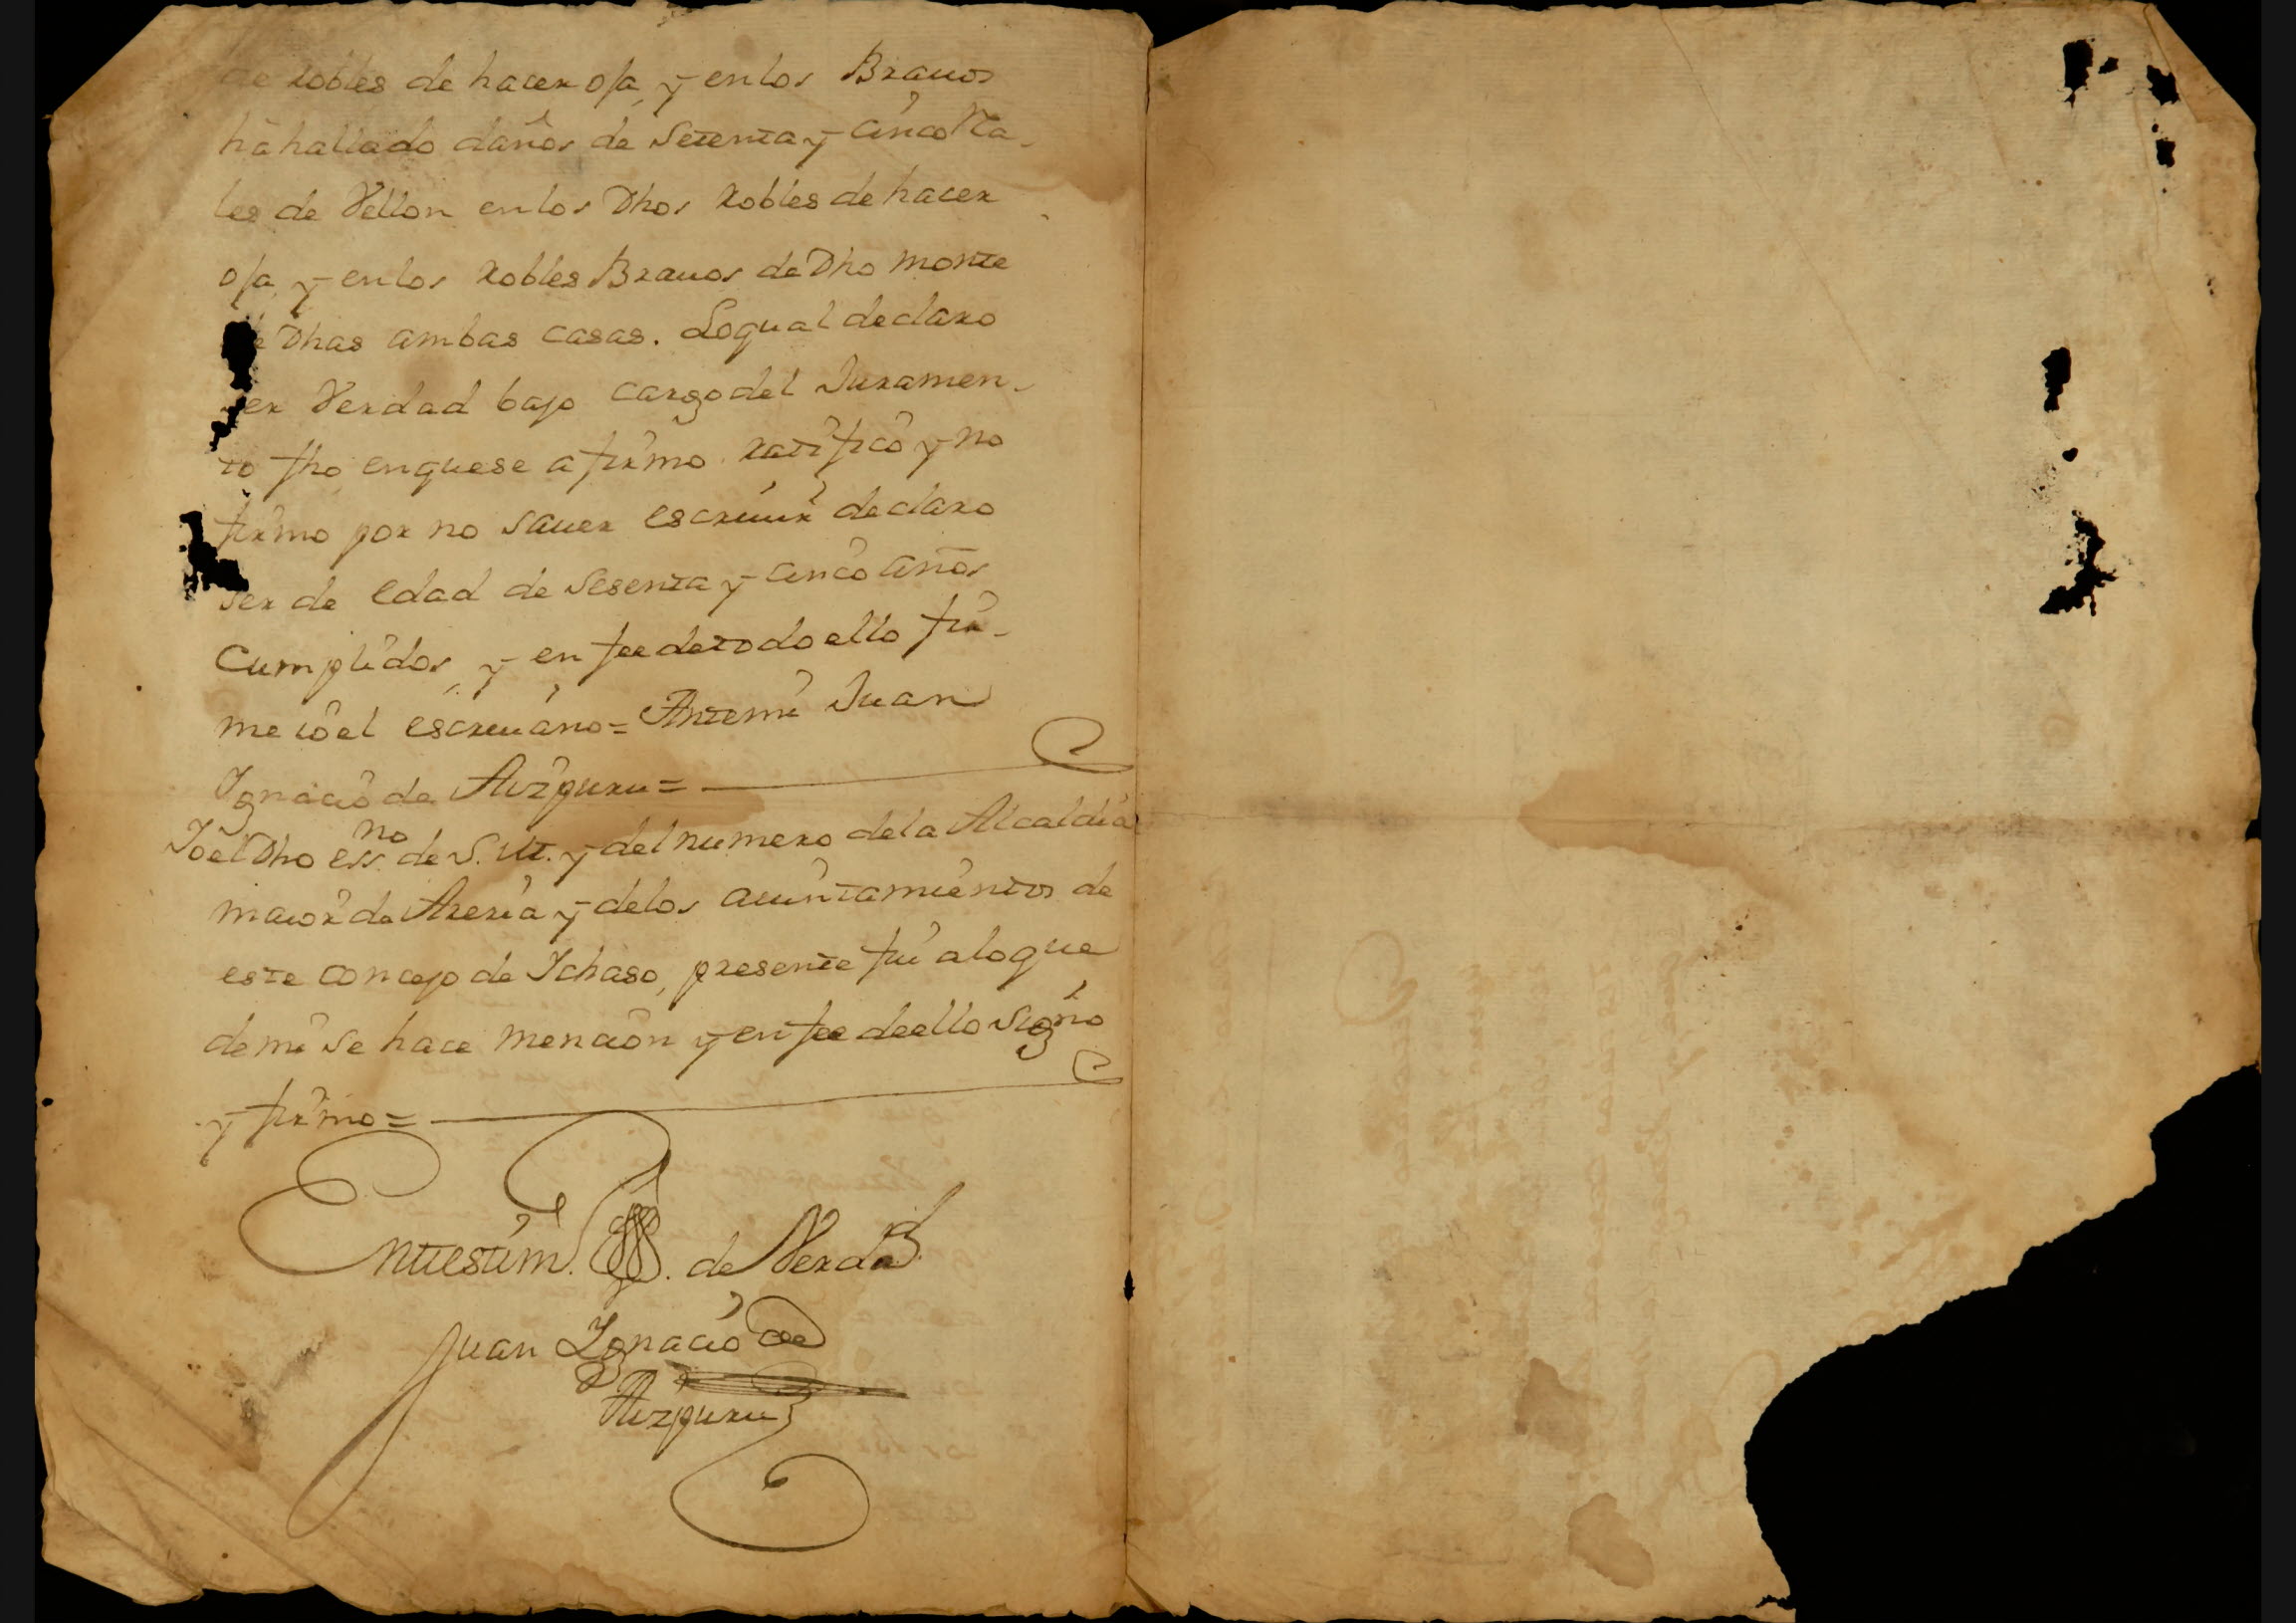 de robles de hacer oja, y en los Brauos
hà hallado daños de Setenta y cinco Rea-
les de Vellon en los Dhos Robles de hacer
oja, y en los Robles Brauos de Dho monte
de Dhas ambas casas. Loqual declaro
ser Verdad bajo cargo del Juramen-
to fho, enquese afirmo. ratifico y no
firmo por no sauer escriuir declaro
ser de edad de Sesenta y cinco años
Cumplidos, y en fee de todo ello fir-
me io el escriuano = Antemi Juan
Ygnacio de Aizpuru =
Io el Dho ess.no de S. M. y del numero dela Alcaldia
maior de Areria y delos aiuntamientos de
este concejo de Ichaso, presente fui alo que
de mi se hace mencion y en fee de ello signo
y firmo =
En testim.o de Verdad.
Juan Ygnacio de
Aizpuru